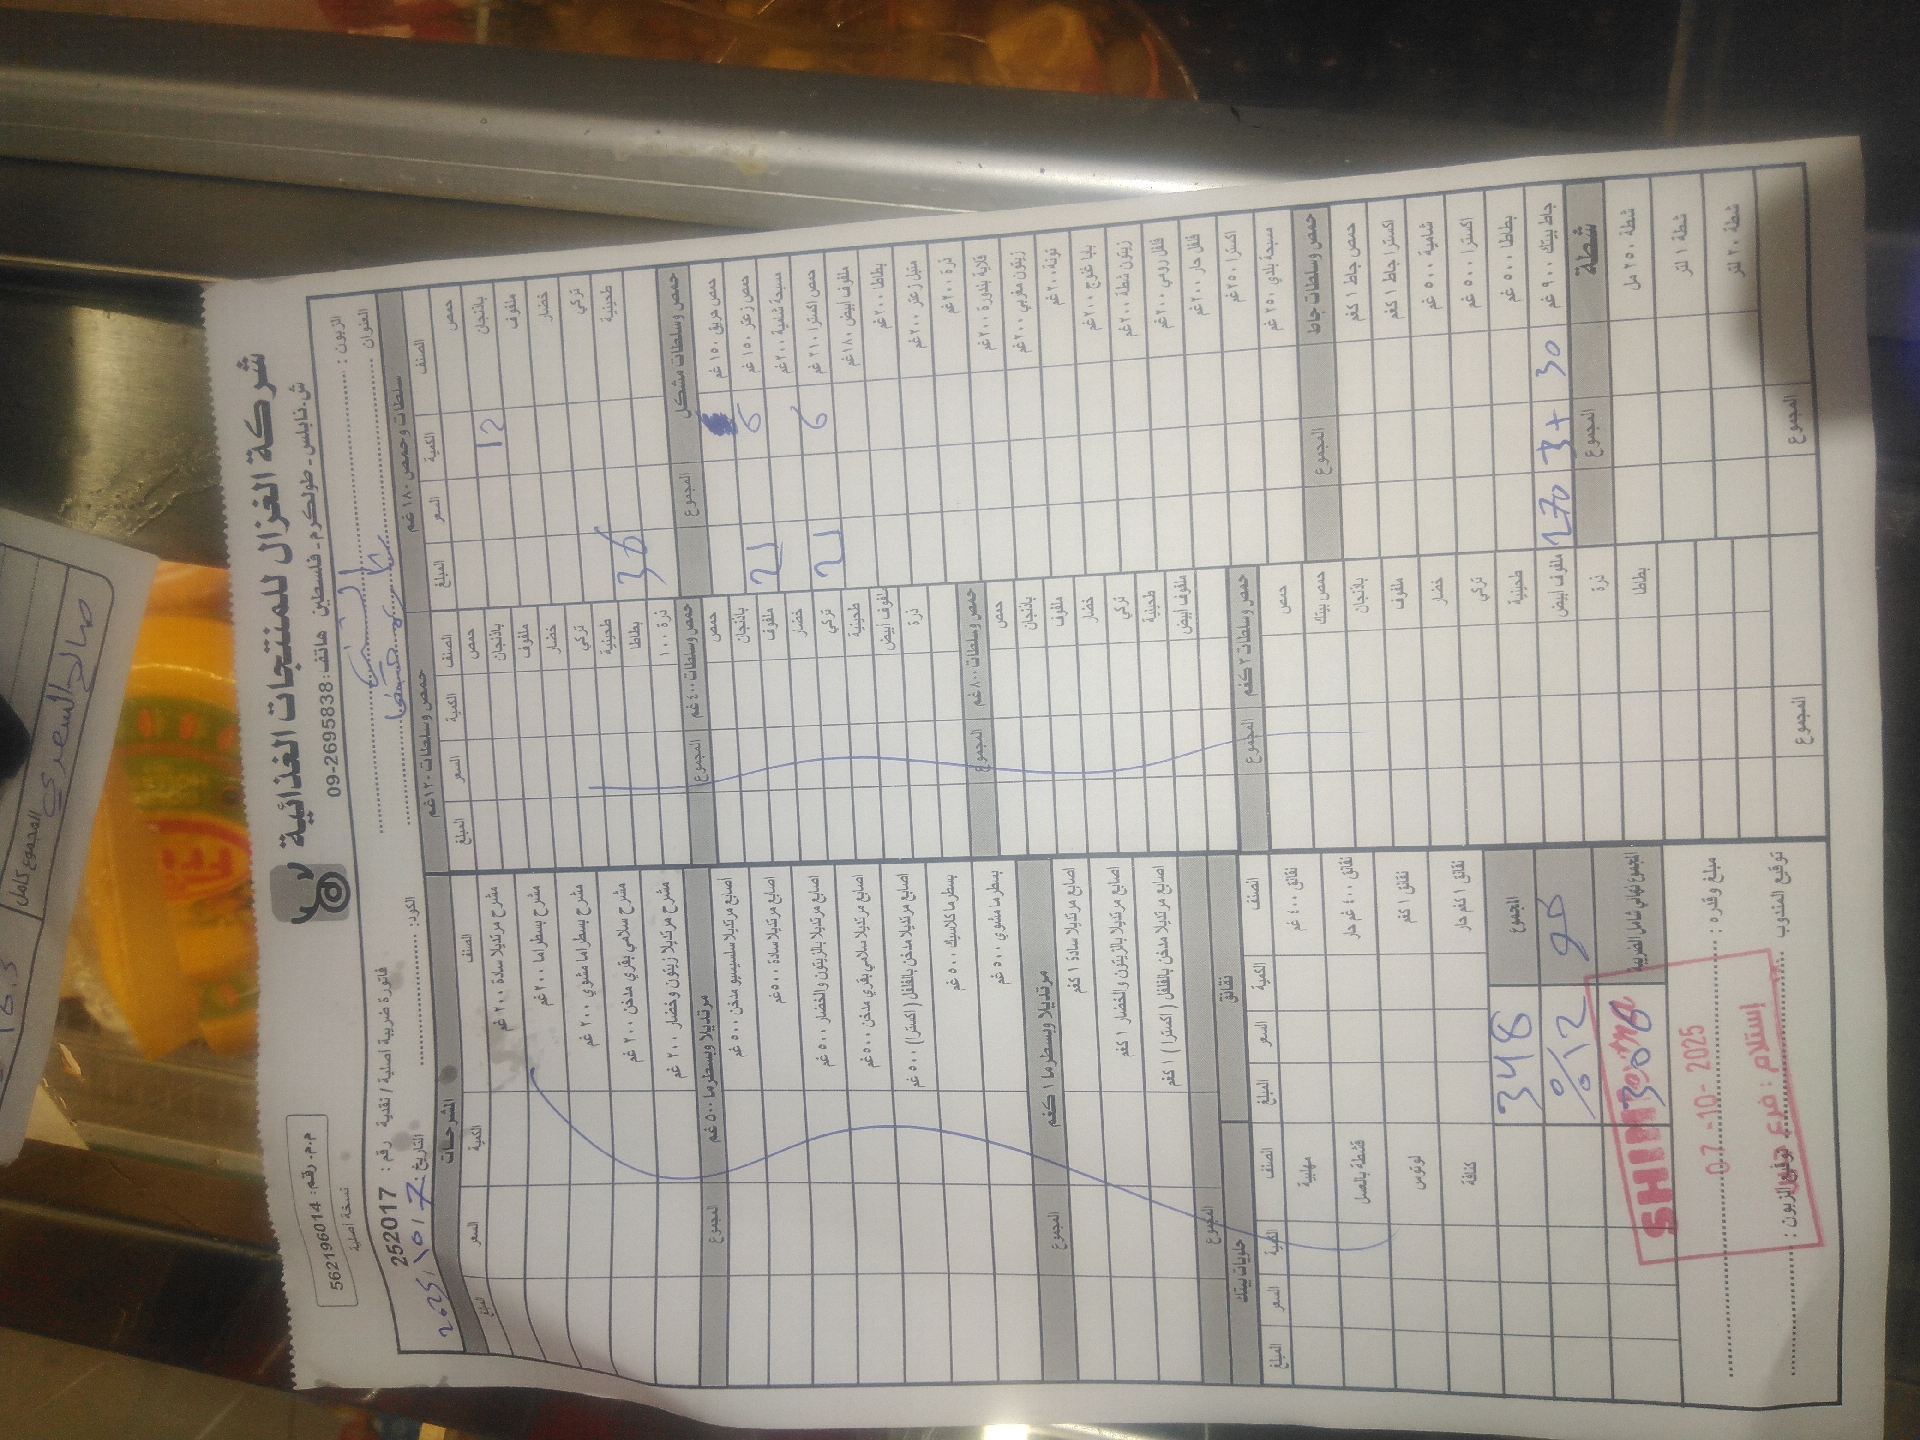 شركة الغزال للمنتجات الغذائية
ش.نابلس - طولكرم - فلسطين هاتف: 09-2695838
م.م. رقم: 562196014
نسخة أصلية
الزبون :
العنوان
الكود:
فاتورة ضريبية أصلية / نقدية رقم : 252017
التاريخ: 2025/10/7
سلطات وحمص ١٨٠ غم
الصنف الكمية السعر المبلغ
حمص
باذنجان 12
ملفوف
خضار
تركي
طحينية
36
حمص وسلطات مشكل المجموع
حمص حريق ١٥٠ غم
حمص زعتر ١٥٠ غم 6 21
مسبحة شفية ٢٠٠ غم
حمص اكسترا ٢١٠ غم 6 21
ملفوف ابيض ١٨٠ غم
بطاطا ٢٠٠ غم
متبل زعتر ٢٠٠ غم
ذرة ٢٠٠ غم
قلاية بندورة ٢٠٠ غم
زيتون مغربي ٢٠٠ غم
تونة ٢٠٠ غم
بابا غنوج ٢٠٠ غم
زيتون شطة ٢٠٠ غم
فلفل رومي ٢٠٠ غم
فلفل حار ٢٠٠ غم
اكسترا ٢٥٠ غم
مسبحة بلدي ٢٥٠ غم
حمص وسلطات جاط المجموع
حمص جاط ١ كغم
اكسترا جاط ١ كغم
شامية ٥٠٠ غم
اكسترا ٥٠٠ غم
بطاطا ٥٠٠ غم
جاط بيتك ٩٠٠ غم 30 3+ 270
شطة المجموع
شطة ٢٥٠ مل
شطة ١ لتر
شطة ٢٠ لتر
المجموع
حمص وسلطات ١٢٠ غم
الصنف الكمية السعر المبلغ
حمص
باذنجان
ملفوف
خضار
تركي
طحينية
بطاطا
ذرة ١٠٠
حمص وسلطات ٤٠٠ غم المجموع
حمص
باذنجان
ملفوف
خضار
تركي
طحينية
ملفوف أبيض
ذرة
حمص وسلطات ٨٠٠ غم المجموع
حمص
باذنجان
ملفوف
خضار
تركي
طحينية
ملفوف أبيض
حمص وسلطات ٣ كغم المجموع
حمص
حمص بيتك
باذنجان
ملفوف
خضار
تركي
طحينية
ملفوف أبيض
ذرة
بطاطا
المجموع
المشرحات
الصنف الكمية السعر المبلغ
مشرح مرتديلا سادة ٢٠٠ غم
مشرح بسطراما ٢٠٠ غم
مشرح بسطراما مشوي ٢٠٠ غم
مشرح سلامي بقري مدخن ٢٠٠ غم
مشرح مرتديلا زيتون وخضار ٢٠٠ غم
مرتديلا وبسطرما ٥٠٠ غم المجموع
اصابع مرتديلا سلسيسيو مدخن ٥٠٠ غم
اصابع مرتديلا سادة ٥٠٠ غم
اصابع مرتديلا بالزيتون والخضار ٥٠٠ غم
اصابع مرتديلا سلامي بقري مدخن ٥٠٠ غم
اصابع مرتديلا مدخن بالفلفل ( اكسترا ) ٥٠٠ غم
بسطرما كلاسيك ٥٠٠ غم
بسطرما مشوي ٥٠٠ غم
مرتديلا وبسطرما ١ كغم المجموع
اصابع مرتديلا سادة ١ كغم
اصابع مرتديلا بالزيتون والخضار ١ كغم
اصابع مرتديلا مدخن بالفلفل ( اكسترا ) ١ كغم
المجموع
نقانق
الصنف الكمية السعر المبلغ
نقانق ٤٠٠ غم
نقانق ٤٠٠ غم حار
نقانق ١ كغم
نقانق ١ كغم حار
حلويات بيتك
الصنف الكمية السعر المبلغ
مهلبية
قشطة بالعسل
لوتوس
كنافة
المجموع 348
%12
المجموع النهائي شامل الضريبة
مبلغ وقدره :
توقيع المندوب
توقيع الزبون :
07-10-2025
استلام : فرع
صالح السعدي
المجموع كامل